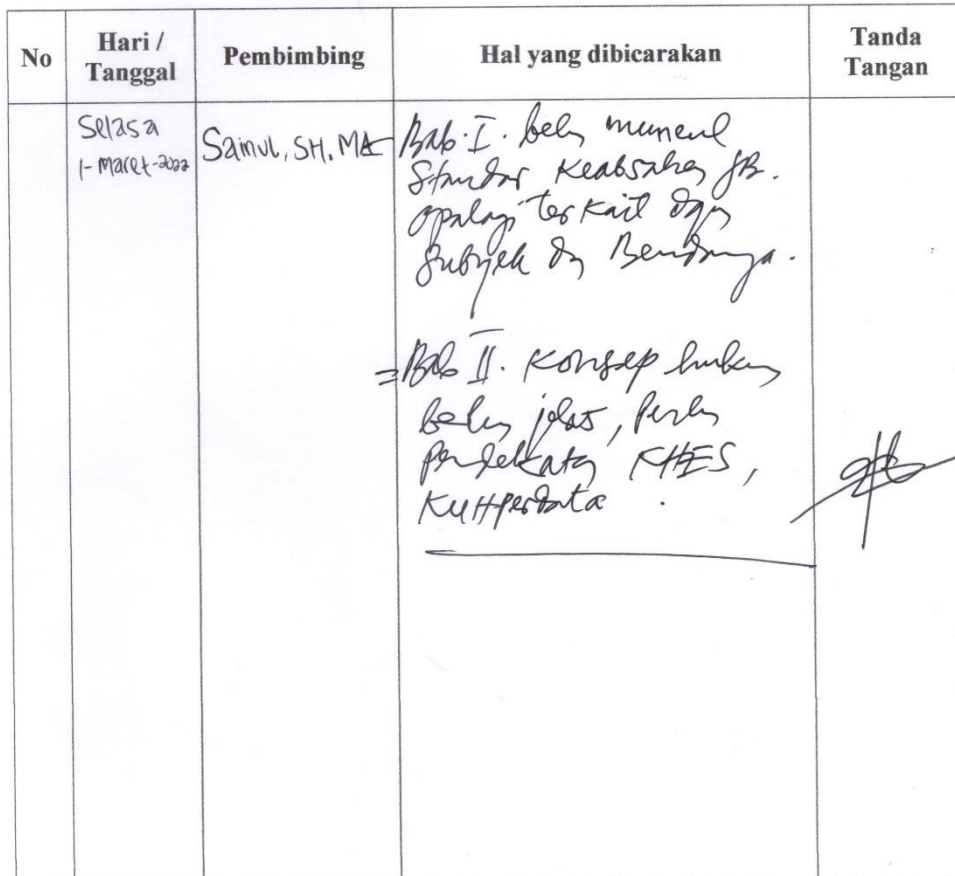 No
Hari /
Tanggal
Pembimbing
Hal yang dibicarakan
Tanda
Tangan
Selasa
1-Maret-2022
Sainul, SH, MA
Bab. I. belum muncul
Standar Keabsahan JB.
apalagi terkait dgn
Subyek dan Bendanya.
= Bab II. Konsep hukum
belum jelas, perlu
pendekatan KHES,
KUHPerdata.